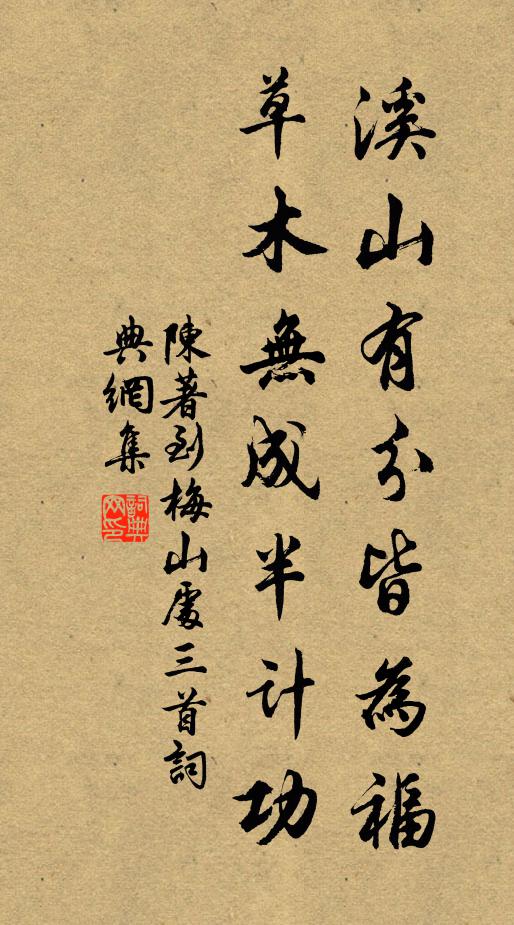 溪山有分皆為福
草木無成半計功
陳著到梅山處三首詞
典網集
詞典
网印